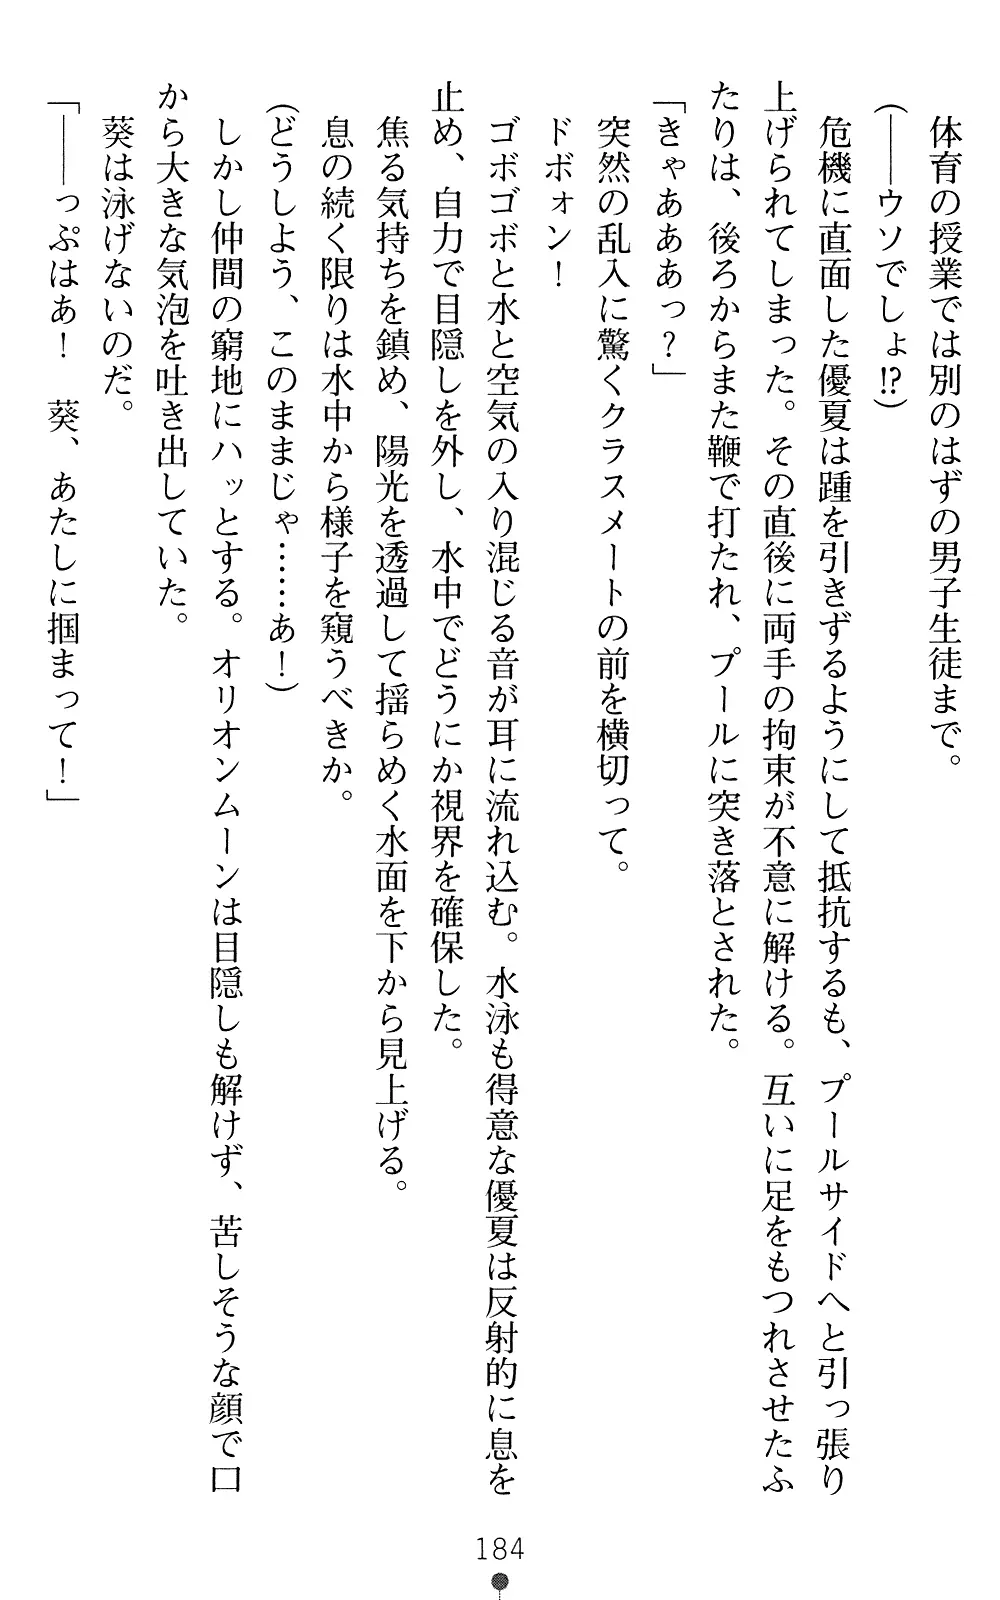 体育の授業では別のはずの男子生徒まで。
(――ウソでしょ!?)
危機に直面した優夏は踵を引きずるようにして抵抗するも、プールサイドへと引っ張り
上げられてしまった。その直後に両手の拘束が不意に解ける。互いに足をもつれさせたふ
たりは、後ろからまた鞭で打たれ、プールに突き落とされた。
「きゃあああっ?」
突然の乱入に驚くクラスメートの前を横切って。
ドボォン!
ゴボゴボと水と空気の入り混じる音が耳に流れ込む。水泳も得意な優夏は反射的に息を
止め、自力で目隠しを外し、水中でどうにか視界を確保した。
焦る気持ちを鎮め、陽光を透過して揺らめく水面を下から見上げる。
息の続く限りは水中から様子を窺うべきか。
(どうしよう、このままじゃ……あ!)
しかし仲間の窮地にハッとする。オリオンムーンは目隠しも解けず、苦しそうな顔で口
から大きな気泡を吐き出していた。
葵は泳げないのだ。
「――っぷはあ! 葵、あたしに掴まって!」
184